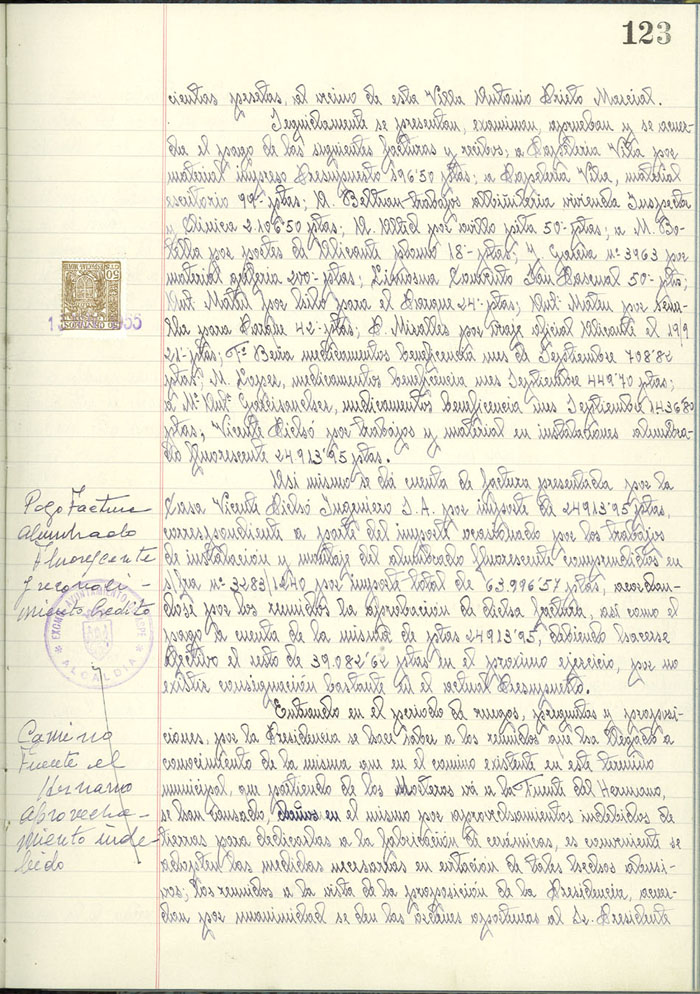 123
cientas pesetas, al vecino de esta Villa Antonio Prieto Marcial.
Seguidamente se presentan, examinan, aprueban y se acuer-
da el pago de las siguientes facturas y recibos; a Papeleria Villa por
material impreso Presupuesto 896'50 ptas; a Papeleria Vila, material
escritorio 99'- ptas; M. Beltran trabajos albiñileria vivienda Inspecta
y Clinica 2.106'50 ptas; por ovillo pita 50'- ptas; a M. Bo-
tella por portes de Alicante plomo 18'- ptas; Y Galeria nº 3963 por
material galeria 240'- ptas; Limosna Convento San Pascual 50'- ptas;
Ant. Mateu por hilo para el Parque 24'- ptas; Ant. Mateu por
para Parque 42'- ptas; P. Miralles por viaje oficial Alicante el 19/9
21'- ptas; Fº Beña medicamentos beneficencia mes de Septiembre 708'82
ptas; M. Lopez, medicamentos beneficencia mes Septiembre 449'70 ptas;
a Mª Antª medicamentos beneficencia mes Septiembre 1436'80
ptas, Vicente Pielsó por trabajos y material en instalaciones alumbra-
do fluorescente 24913'95 ptas.
Asi mismo se dá cuenta de factura presentada por la
Casa Vicente Pielsó Ingeniero S.A. por importe de 24913'95 ptas,
correspondiente a parte del importe ocasionado por los trabajos
de instalación y montaje del alumbrado fluorescente comprendidos en
s/fra nº 3283/1240 por importe total de 63.996'57 ptas, acordan-
dose por los reunidos la aprobación de dicha factura, asi como el
pago a cuenta de la misma de ptas 24913'95, debiendo hacerse
efectivo el resto de 39.082'62 ptas en el proximo ejercicio, por no
existir consignación bastante en el actual Presupuesto.
Entrando en el periodo de ruegos, preguntas y proposi-
ciones, por la Presidencia se hace saber a los reunidos que ha llegado a
conocimiento de la misma que en el camino existente en este termino
municipal, que partiendo de los Morteros vá a la Fuente del Hermano,
se han causado, daños en el mismo por aprovechamientos indebidos de
tierras para dedicarlas a la fabricación de cerámicas, es conveniente se
adopten las medidas necesarias en evitación de tales hechos abusi-
vos; los reunidos a la vista de la proposición de la Presidencia, acuer-
dan por unanimidad se den las órdenes oportunas al Sr. Presidente
50 CTS
CENTIMOS
Pago Factura
alumbrado
Fluorescente
y reconoci-
miento Crédito
EXCMO. AYUNTAMIENTO
ALCALDIA
Camino
Fuente el
Hermano
aprovecha-
miento inde-
bido